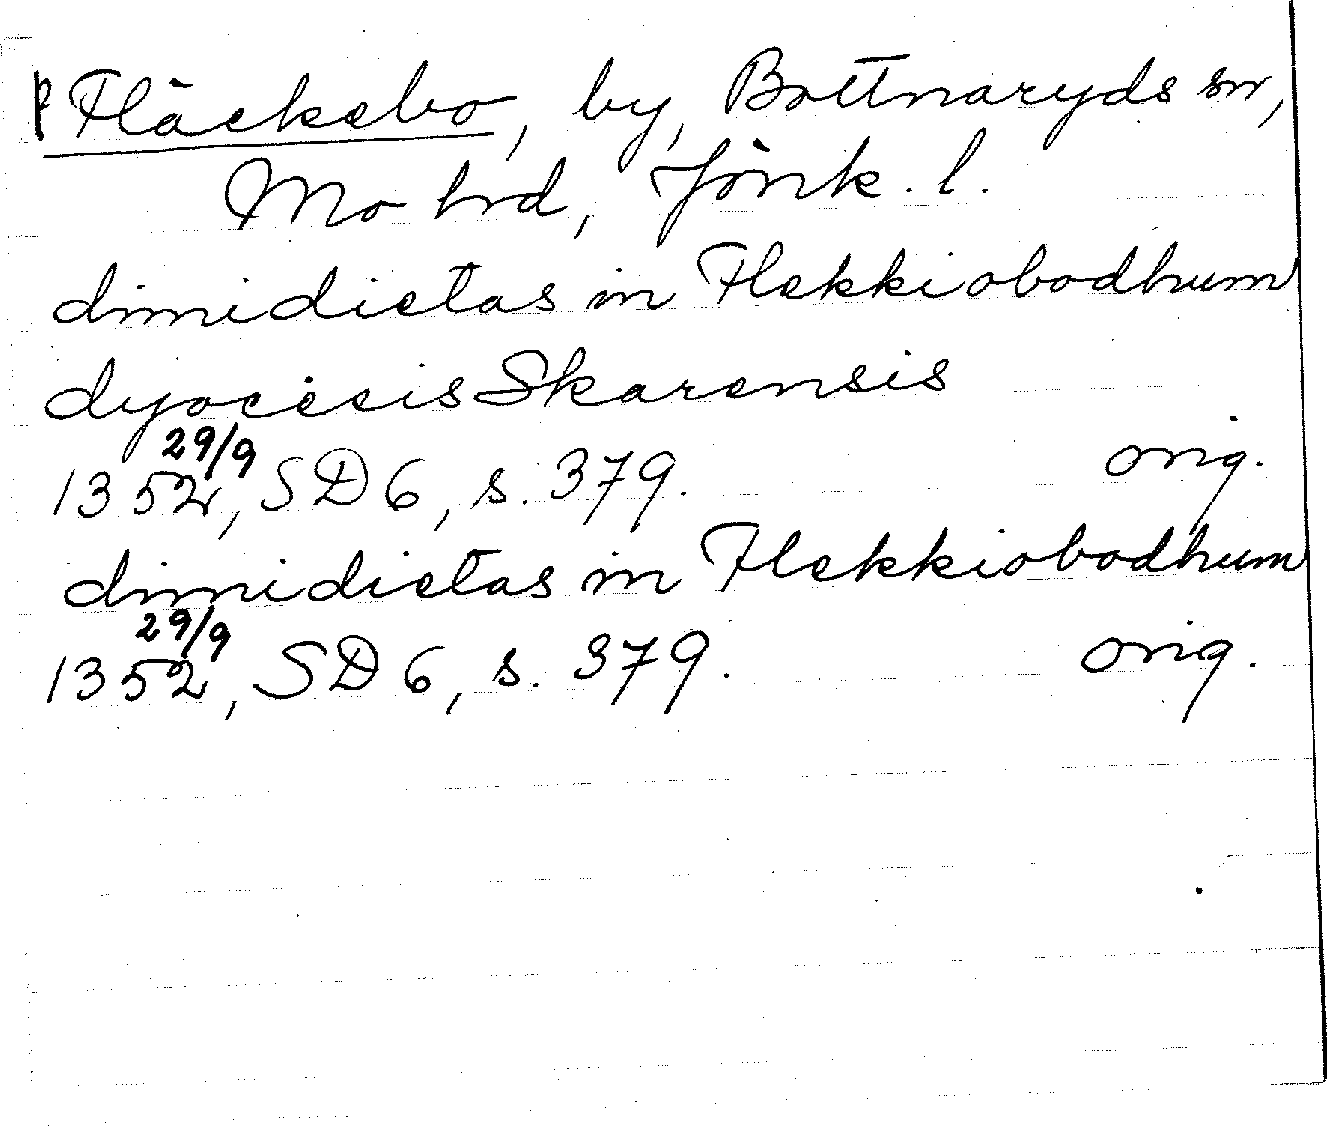 P Fläckebo, by, Bottnaryds sn,
Mo hrd, Jönk. l.
dimidietas in Flekkiobodhum
dyocesis Skarensis
1352 29/9, SD 6, s. 379. orig.
dimidietas in Flekkiobodhum
1352 29/9, SD 6, s. 379. orig.